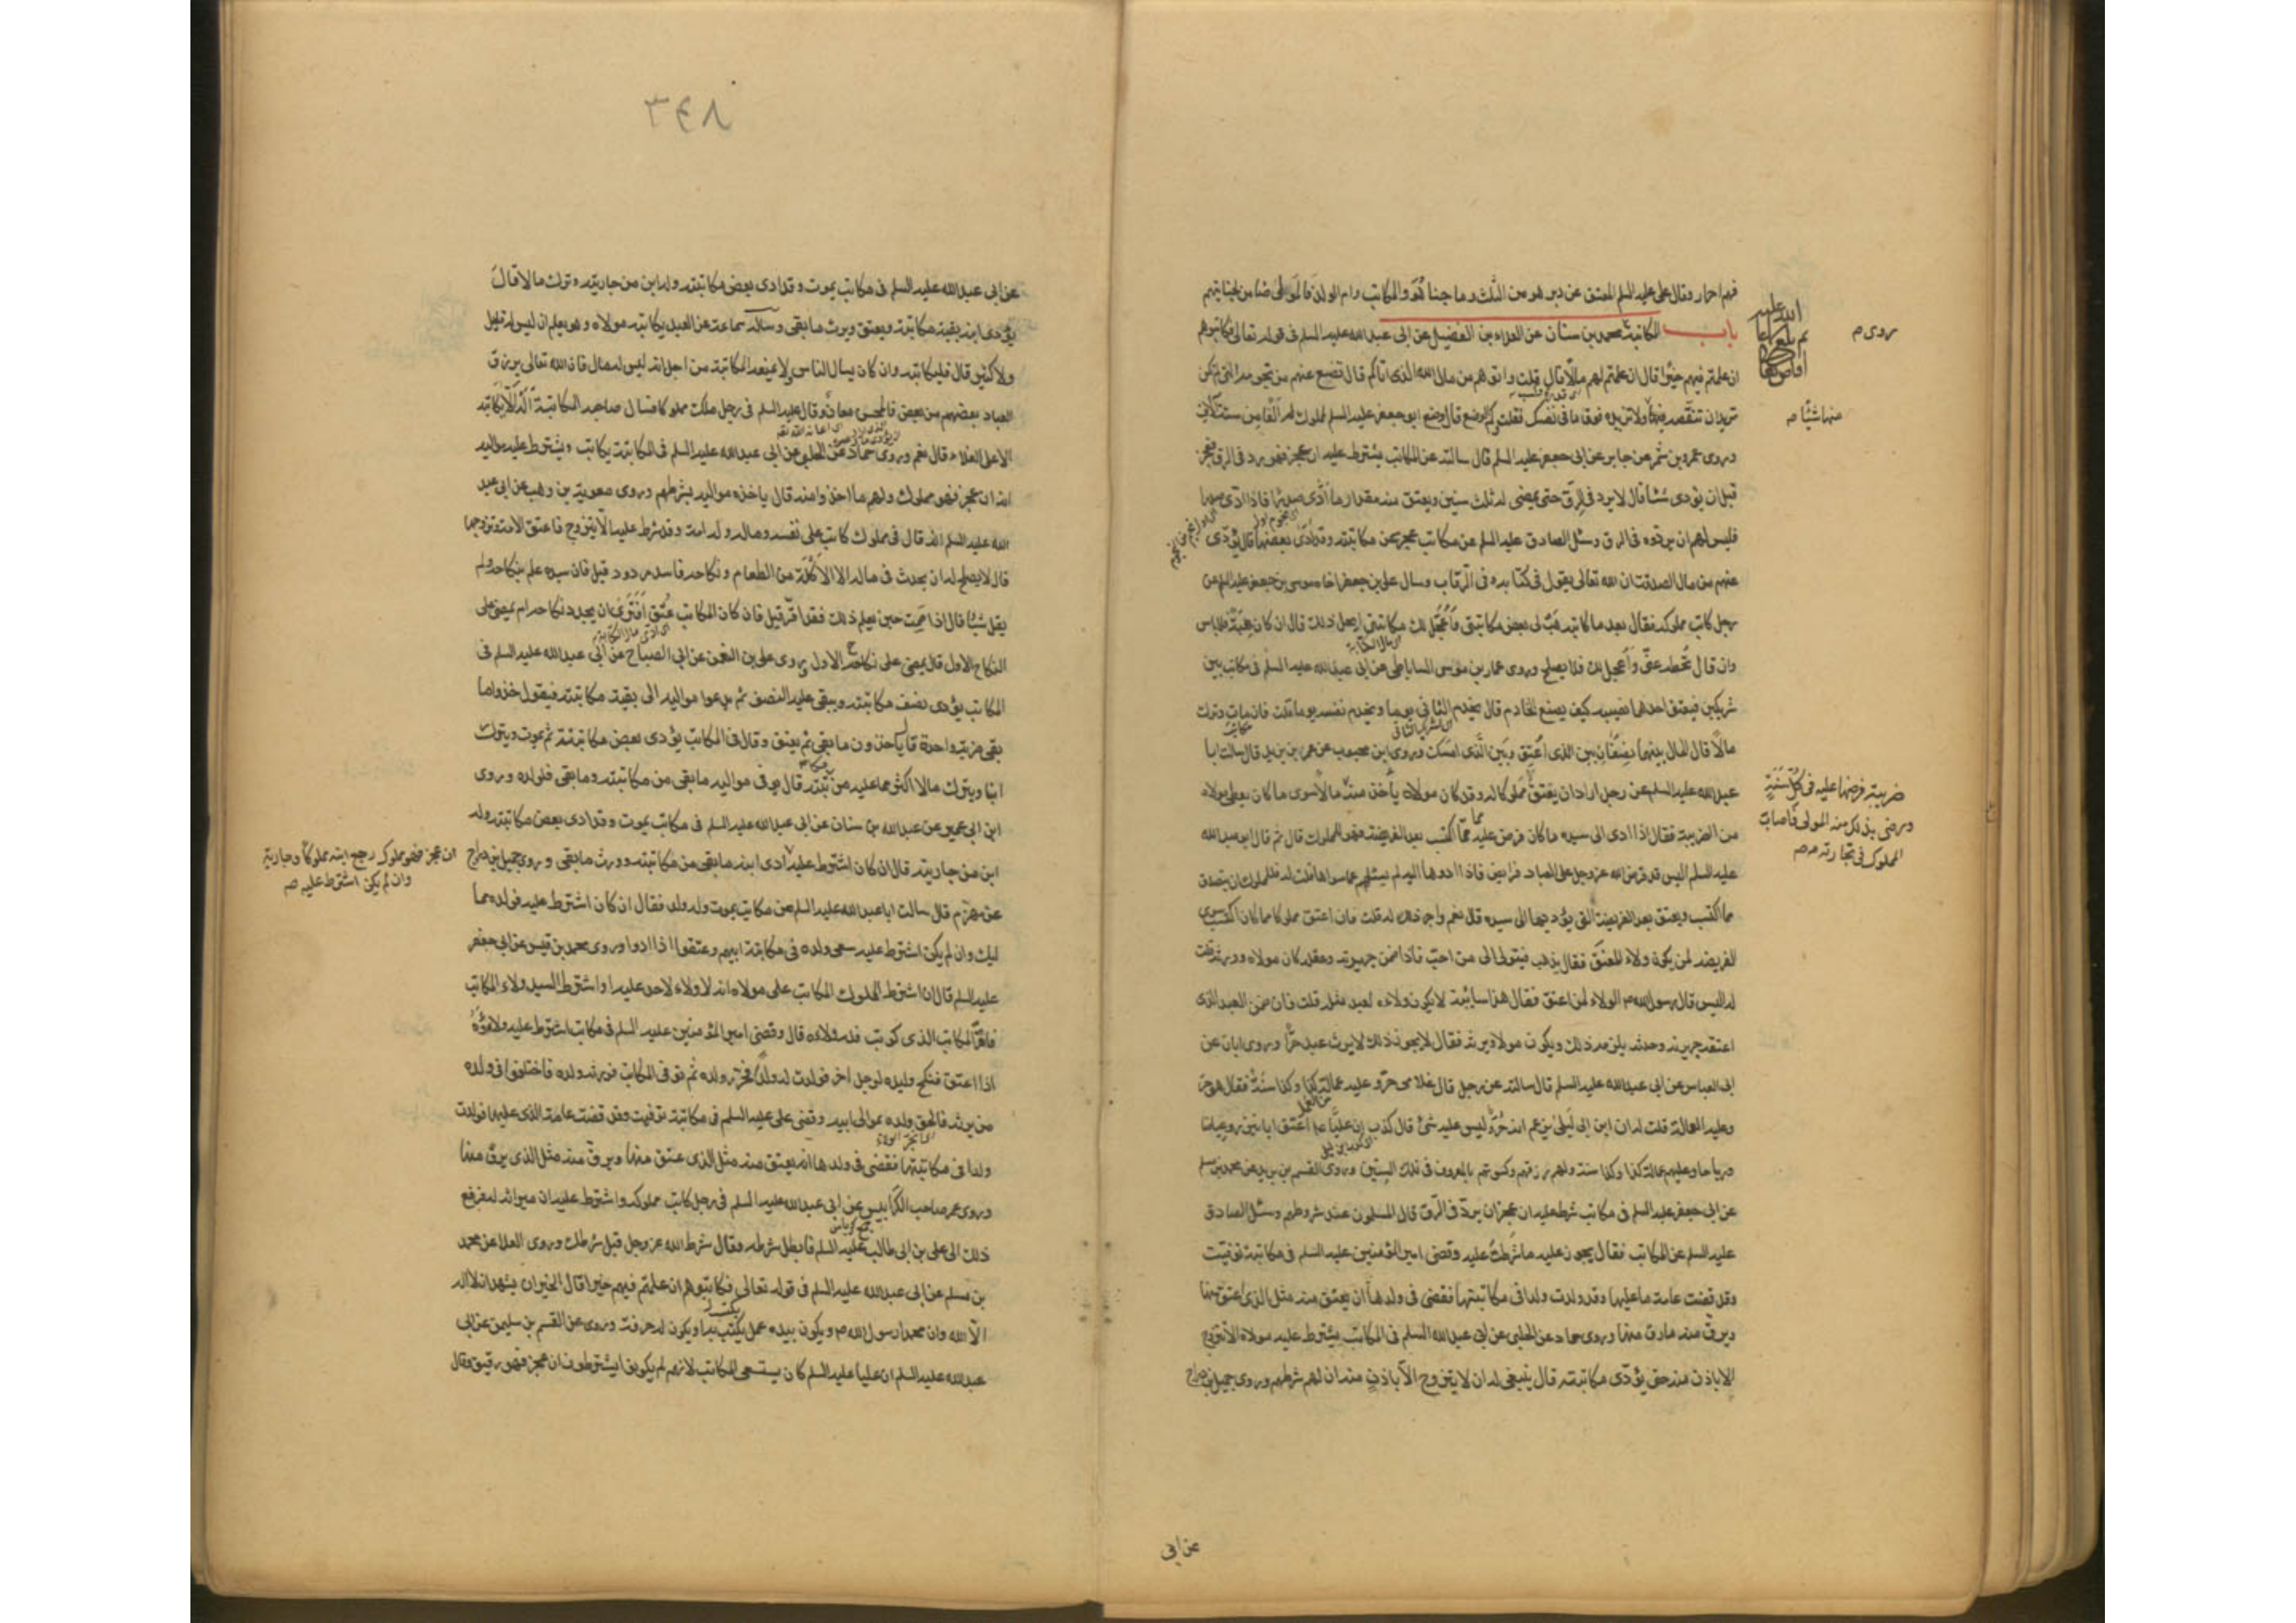 فهم احرار وقال علي عليه السلم المعتق عن دبر هو من الثلث وما جنا هو والمكاتب وام الولد فالمولى ضامن لجنايتهم
باب المكاتبة محمد بن سنان عن العلاء بن الفضيل عن ابى عبد الله عليه السلم فى قوله تعالى فكاتبوهم
روى م
ان علمتم فيهم خيرا قال ان علمتم لهم مالا قال قلت واتوهم من مال الله الذى اتاكم قال تضع عنهم من نجومه التى لم تكن
تريد ان تنقصه فيها ولا تزيده فوق ما فى نفسك فقلت كم وضع قال وضع ابو جعفر عليه السلم لمملوك له الفا من ستة آلاف
منها شيئا صه
وروى عمرو بن شمر عن جابر عن ابى جعفر عليه السلم قال سالته عن المكاتب يشترط عليه ان عجز فهو رد فى الرق فعجز
قبل ان يؤدى شيئا قال لا يرد فى الرق حتى يمضى له ثلث سنين ويعتق منه مقدار ما ادى صدرا فاذا ادى صدرا
فليس لهم ان يردوه فى الرق وسئل الصادق عليه السلم عن مكاتب عجز عن مكاتبته وقد ادى بعضها قال يؤدى
عنهم من مال الصدقة ان الله تعالى يقول فى كتابه وفى الرقاب وسال على بن جعفر اخاه موسى بن جعفر عليه السلم عن
رجل كاتب مملوكه فقال بعد ما كاتبه هب لى بعض مكاتبتى واعجل لك مكاتبتى ايحل ذلك قال ان كان هبة فلا باس
وان قال تحط عنى واعجل لك فلا يصلح وروى عمار بن موسى الساباطى عن ابى عبد الله عليه السلم فى مكاتب بين
شريكين فيعتق احدهما نصيبه كيف يصنع الخادم قال يخدم الثانى يوما ويخدم نفسه يوما قلت فان مات وترك
مالا قال المال بينهما نصفان بين الذى اعتق وبين الذى امسك وروى ابن محبوب عن عمر بن يزيد قال سالت ابا
عبد الله عليه السلم عن رجل اراد ان يعتق مملوكا له وقد كان مولاه ياخذ منه مالا سوى ما كان يعطى مولاه
ضريبة فرضها عليه فى كل سنة
ورضى بذلك منه المولى فاصاب
المملوك فى تجارته صه
من الضريبة فقال اذا ادى الى سيده ما كان فرض عليه فما اكتسب بعد الفريضة فهو للمملوك قال ثم قال ابو عبد الله
عليه السلم اليس قد فرض الله عز وجل على العباد فرايض فاذا ادوها اليه لم يسئلهم عما سواها قلت له فللمملوك ان يتصدق
مما اكتسب ويعتق بعد الفريضة التى يؤديها الى سيده قال نعم واجر ذلك له قلت فان اعتق مملوكا مما كان اكتسب سوى
الفريضة لمن يكون ولاء المعتق فقال يذهب فيتوالى الى من احب فاذا ضمن جريرته وعقله كان مولاه وورثه قلت
له اليس قال رسول الله ص الولاء لمن اعتق فقال هذا سائبة لا يكون ولاءه لعبد مثله قلت فان ضمن العبد الذى
اعتقه جريرته وحدثه يلزمه ذلك ويكون مولاه ويرثه فقال لا يجوز ذلك لا يرث عبد حرا وروى ابان عن
ابى العباس عن ابى عبد الله عليه السلم قال سالته عن رجل قال غلامى حر وعليه عمالة كذا وكذا سنة فقال هو حر
وعليه العمالة قلت له ان ابن ابى ليلى يزعم انه حر وليس عليه شئ قال كذب ان عليا ع اعتق ابا نيزر وعياضا
ورياحا وعليهم عمالة كذا وكذا سنة ولهم رزقهم وكسوتهم بالمعروف فى تلك السنين وروى القسم بن بريد عن محمد بن مسلم
عن ابى جعفر عليه السلم فى مكاتب شرط عليه ان عجز ان يرد فى الرق قال المسلمون عند شروطهم وسئل الصادق
عليه السلم عن المكاتب فقال يجوز عليه ما شرطت عليه وقضى امير المؤمنين عليه السلم فى مكاتبة توفيت
وقد قضت عامة ما عليها وقد ولدت ولدا فى مكاتبتها فقضى فى ولدها ان يعتق منه مثل الذى اعتق منها
ويرق منه مارق منها وروى حماد عن الحلبى عن ابى عبد الله السلم فى المكاتب يشترط عليه مولاه الا يتزوج
الا باذن منه حتى يؤدى مكاتبته قال ينبغى له ان لا يتزوج الا باذن منه ان لهم شرطهم وروى جميل بن دراج
عن ابى
٣٤٨
عن ابى عبد الله عليه السلم فى مكاتب يموت وقد ادى بعض مكاتبته وله ابن من جاريته وترك مالا قال
يؤدى ابنه بقية مكاتبته ويعتق ويرث ما بقى وساله سماعة عن العبد يكاتبه مولاه وهو يعلم ان ليس له قليل
ولا كثير قال فليكاتبه وان كان يسال الناس ولا يمنعه المكاتبة من اجل انه ليس له مال فان الله تعالى يرزق
العباد بعضهم من بعض فالمحسن معان وقال عليه السلم فى رجل ملك مملوكا فسال صاحبه المكاتبة اله الا يكاتبه
الا على الغلاء قال نعم وروى حماد عن الحلبى عن ابى عبد الله عليه السلم فى المكاتبة يكاتب ويشترط عليه مواليه
انه ان عجز فهو مملوك ولهم ما اخذوا منه قال ياخذه مواليه بشرطهم وروى معوية بن وهب عن ابى عبد
الله عليه السلم انه قال فى مملوك كاتب على نفسه وماله وله امة وقد شرط عليه الا يتزوج فاعتق الامة وتزوجها
قال لا يصلح له ان يحدث فى ماله الا الاكلة من الطعام ونكاحه فاسد مردود قيل فان سيده علم بنكاحه ولم
يقل شيئا قال اذا صمت حين يعلم ذلك فقد اقر قيل فان كان المكاتب عتق افترى ان يجدد نكاحه ام يمضى على
النكاح الاول قال يمضى على نكاحه الاول وروى على بن النعمن عن ابى الصباح عن ابى عبد الله عليه السلم فى
المكاتب يؤدى نصف مكاتبته ويبقى عليه النصف ثم يدعو مواليه الى بقية مكاتبته فيقول خذوا ما
بقى ضربة واحدة قال ياخذون ما بقى ثم يعتق وقال فى المكاتب يؤدى بعض مكاتبته ثم يموت ويترك
ابنا ويترك مالا اكثر مما عليه من مكاتبته قال يوفى مواليه ما بقى من مكاتبته وما بقى فلولده وروى
ابن ابى عمير عن عبد الله بن سنان عن ابى عبد الله عليه السلم فى مكاتب يموت وقد ادى بعض مكاتبته وله
ابن من جاريته قال ان كان اشترط عليه ادى ابنه ما بقى من مكاتبته وورث ما بقى وروى جميل بن دراج
ان عجز فهو مملوك رجع ابنه مملوكا وجارية
وان لم يكن اشترط عليه صه
عن مهزم قال سالت ابا عبد الله عليه السلم عن مكاتب يموت وله ولد فقال ان كان اشترط عليه فولده مما
ليك وان لم يكن اشترط عليه سعى ولده فى مكاتبة ابيهم وعتقوا اذا ادوا وروى محمد بن قيس عن ابى جعفر
عليه السلم قال ان اشترط المملوك المكاتب على مولاه انه لا ولاء لاحد عليه او اشترط السيد ولاء المكاتب
فاقر المكاتب الذى كوتب فله ولاءه قال وقضى امير المؤمنين عليه السلم فى مكاتب اشترط عليه ولاؤه
اذا اعتق فنكح وليدة لرجل اخر فولدت له ولدا فحرر ولده ثم توفى المكاتب فورثه ولده فاختلفوا فى ولده
من يرثه فالحق ولده بموالى ابيه وقضى على عليه السلم فى مكاتبة توفيت وقد قضت عامة الذى عليها فولدت
ولدا فى مكاتبتها فقضى فى ولدها انه يعتق منه مثل الذى عتق منها ويرق منه مثل الذى يرق منها
وروى عمر صاحب الكرابيس عن ابى عبد الله عليه السلم فى رجل كاتب مملوكه واشترط عليه ان ميراثه له فرفع
ذلك الى على بن ابى طالب عليه السلم فابطل شرطه وقال شرط الله عز وجل قبل شرطك وروى العلا عن محمد
بن مسلم عن ابى عبد الله عليه السلم فى قوله تعالى فكاتبوهم ان علمتم فيهم خيرا قال الخير ان يشهد ان لا اله
الا الله وان محمدا رسول الله ص ويكون بيده عمل يكتسب به او يكون له حرفة وروى عن القسم بن سليمن عن ابى
عبد الله عليه السلم ان عليا عليه السلم كان يستسعى المكاتب لانهم لم يكونوا يشترطون ان عجز فهو رقيق وقال